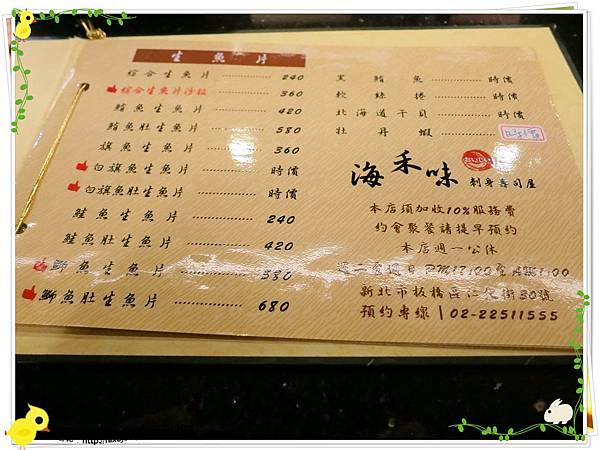 生魚片
綜合生魚片 240
綜合生魚片沙拉 360
鮪魚生魚片 420
鮪魚肚生魚片 580
旗魚生魚片 360
白旗魚生魚片 時價
白旗魚肚生魚片 時價
鮭魚生魚片 240
鮭魚肚生魚片 420
鰤魚生魚片 580
鰤魚肚生魚片 680
黑鮪魚 時價
軟絲捲 時價
北海道干貝 時價
牡丹蝦
海禾味
刺身壽司屋
本店須加收10%服務費
約會聚餐請提早預約
本店週一公休
新北市板橋區仁化街30號
預約專線 | 02-22511555